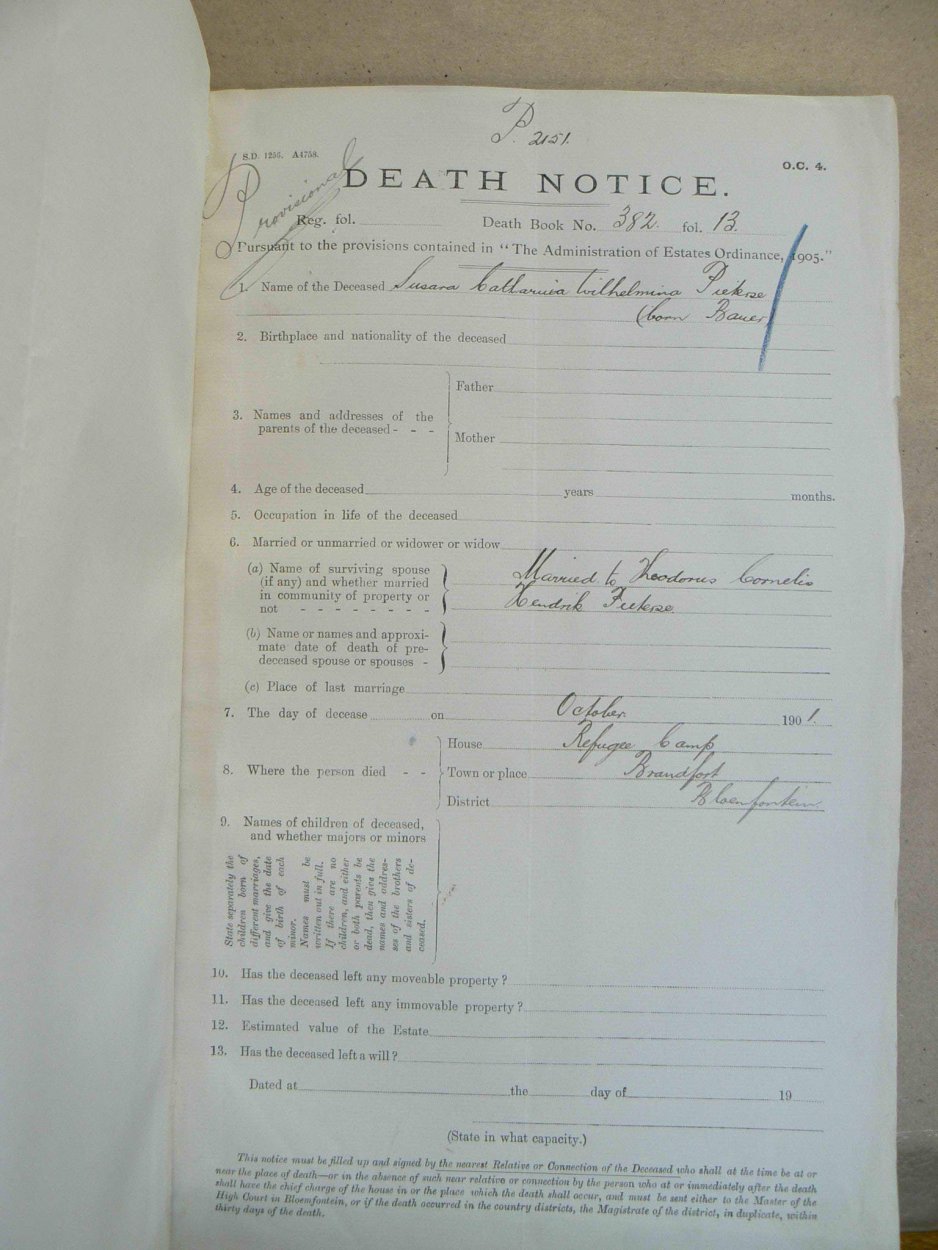 P. 2151.
S.D. 1256. A4758.
O.C. 4.
Provisional
DEATH NOTICE.
Reg. fol. Death Book No. 382. fol. 13.
Pursuant to the provisions contained in "The Administration of Estates Ordinance, 1905."
Name of the Deceased Susara Catharina Wilhelmina Pieterse
(born Bauer)
2. Birthplace and nationality of the deceased
3. Names and addresses of the parents of the deceased - - -
Father
Mother
4. Age of the deceased years months.
5. Occupation in life of the deceased
6. Married or unmarried or widower or widow
(a) Name of surviving spouse
(if any) and whether married
in community of property or
not - - - - - - - -
Married to Theodorus Cornelis
Hendrik Pieterse.
(b) Name or names and approxi-
mate date of death of pre-
deceased spouse or spouses -
(c) Place of last marriage
7. The day of decease on October. 1901.
8. Where the person died - -
House Refugee Camp
Town or place Brandfort
District Bloemfontein.
9. Names of children of deceased,
and whether majors or minors
State separately the
children born of
different marriages,
and give the date
of birth of each
minor.
Names must be
written out in full.
If there are no
children, and either
or both parents be
dead, then give the
names and addres-
ses of the brothers
and sisters of de-
ceased.
10. Has the deceased left any moveable property?
11. Has the deceased left any immovable property?
12. Estimated value of the Estate
13. Has the deceased left a will?
Dated at the day of 19
(State in what capacity.)
This notice must be filled up and signed by the nearest Relative or Connection of the Deceased who shall at the time be at or
near the place of death—or in the absence of such near relative or connection by the person who at or immediately after the death
shall have the chief charge of the house in or the place which the death shall occur, and must be sent either to the Master of the
High Court in Bloemfontein, or if the death occurred in the country districts, the Magistrate of the district, in duplicate, within
thirty days of the death.